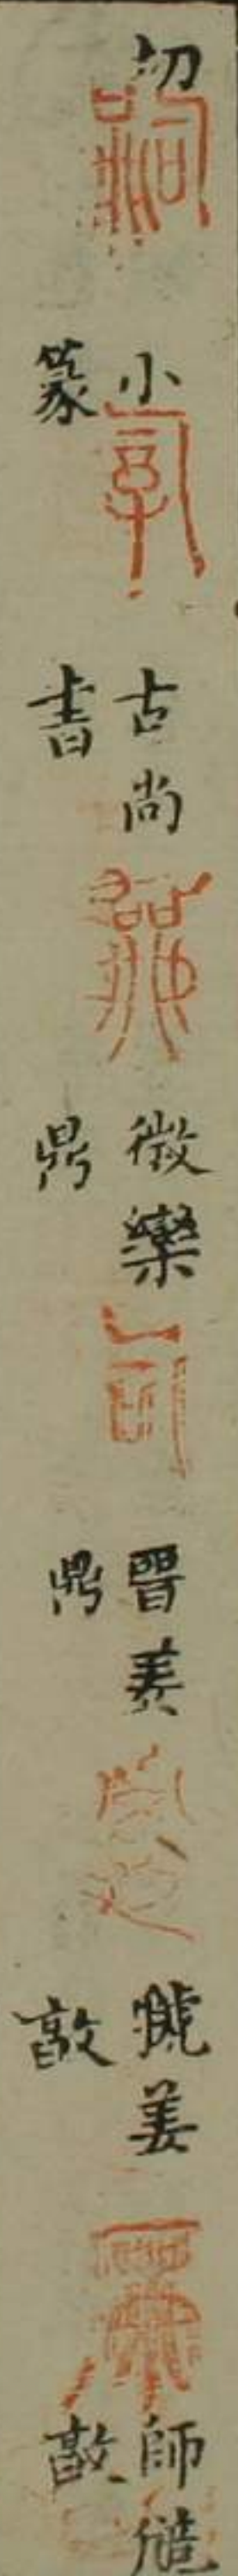 切
小篆
古尚書
微欒鼎
晉姜鼎
虢姜敦
師㝨敦